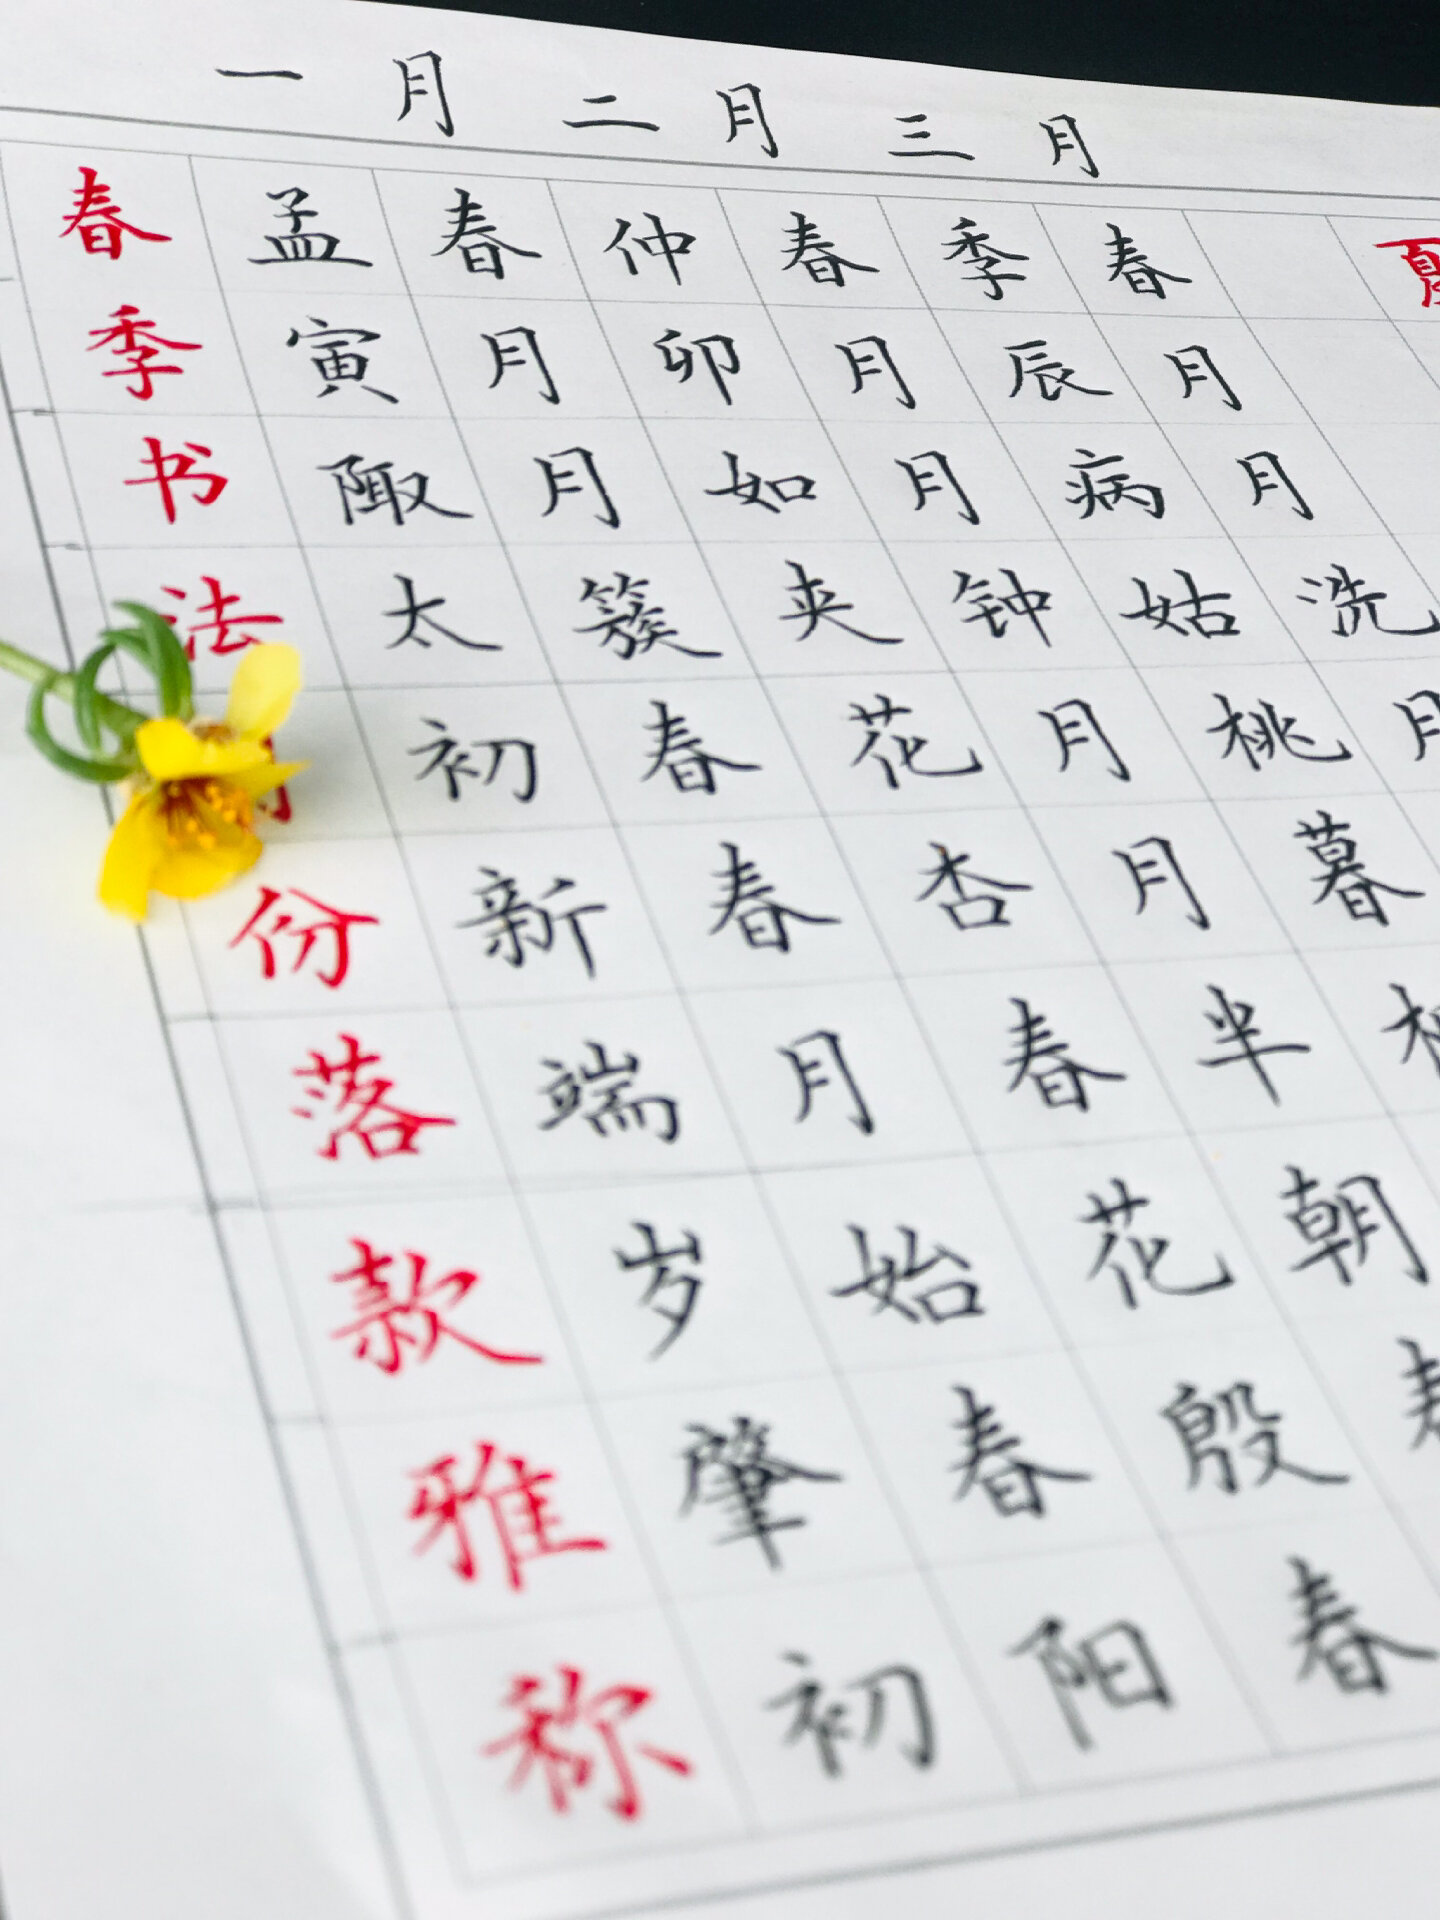 一月 二月 三月
春 孟春 仲春 季春
季 寅月 卯月 辰月
书 陬月 如月 病月
法 太簇 夹钟 姑洗
初春 花月 桃月
份 新春 杏月 暮
落 端月 春半
款 岁始 花朝
雅 肇春 殷
称 初阳 春